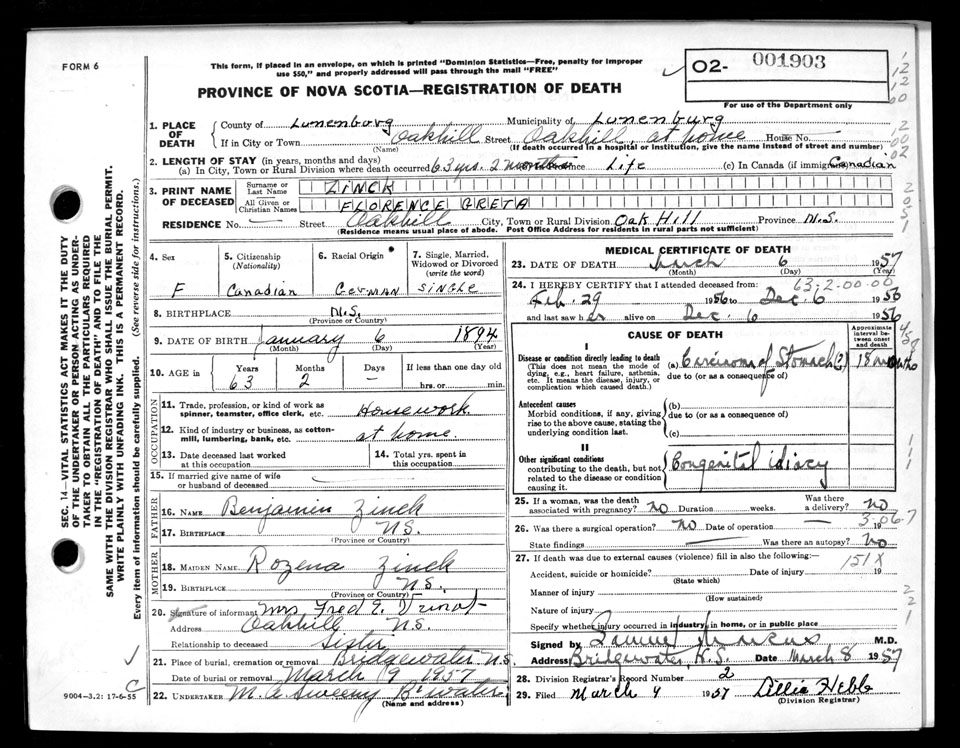 FORM 6
This form, if placed in an envelope, on which is printed "Dominion Statistics—Free, penalty for improper
use $50," and properly addressed will pass through the mail "FREE"
O2- 001903
For use of the Department only
PROVINCE OF NOVA SCOTIA—REGISTRATION OF DEATH
SEC. 14—VITAL STATISTICS ACT MAKES IT THE DUTY
OF THE UNDERTAKER OR PERSON ACTING AS UNDER-
TAKER TO OBTAIN ALL THE PARTICULARS REQUIRED
IN THE "REGISTRATION OF DEATH" AND TO FILE THE
SAME WITH THE DIVISION REGISTRAR WHO SHALL ISSUE THE BURIAL PERMIT.
WRITE PLAINLY WITH UNFADING INK. THIS IS A PERMANENT RECORD.
Every item of information should be carefully supplied. (See reverse side for instructions.)
1. PLACE OF DEATH County of Lunenburg Municipality of Lunenburg
If in City or Town Oakhill Street Oakhill, at home House No. —
(Name) (If death occurred in a hospital or institution, give its name instead of street and number)
2. LENGTH OF STAY (in years, months and days)
(a) In City, Town or Rural Division where death occurred 63 yrs. 2 months Life (c) In Canada (if immigrant) Canadian
3. PRINT NAME OF DECEASED Surname or Last Name ZINCK
All Given or Christian Names FLORENCE GRETA
RESIDENCE No. — Street Oakhill City, Town or Rural Division Oak Hill Province N.S.
(Residence means usual place of abode. Post Office Address for residents in rural parts not sufficient)
4. Sex F
5. Citizenship (Nationality) Canadian
6. Racial Origin German
7. Single, Married, Widowed or Divorced (write the word) Single
8. BIRTHPLACE N.S.
(Province or Country)
9. DATE OF BIRTH January 6 1894
(Month) (Day) (Year)
10. AGE in Years 63 Months 2 Days — If less than one day old
hrs. or min.
OCCUPATION
11. Trade, profession, or kind of work as spinner, teamster, office clerk, etc. Housework
12. Kind of industry or business, as cotton-mill, lumbering, bank, etc. at home.
13. Date deceased last worked at this occupation
14. Total yrs. spent in this occupation
15. If married give name of wife or husband of deceased
FATHER
16. NAME Benjamin Zinck
17. BIRTHPLACE N.S.
(Province or Country)
MOTHER
18. MAIDEN NAME Rozena Zinck
19. BIRTHPLACE N.S.
(Province or Country)
20. Signature of informant Mrs Fred E.
Address Oakhill N.S.
Relationship to deceased Sister
21. Place of burial, cremation or removal Bridgewater N.S.
Date of burial or removal March 9 1957
22. UNDERTAKER M. A. Sweeny B'water
(Name and address)
9004—3.2: 17-6-55
MEDICAL CERTIFICATE OF DEATH
23. DATE OF DEATH March 6 1957
(Month) (Day) (Year)
63-2-00-00
24. I HEREBY CERTIFY that I attended deceased from:
Feb. 29 1956 to Dec. 6 1956
and last saw her alive on Dec. 6 1956
CAUSE OF DEATH
Approximate interval between onset and death
I
Disease or condition directly leading to death (a) Carcinoma of Stomach (?) 18 months
(This does not mean the mode of dying, e.g., heart failure, asthenia, etc. It means the disease, injury, or complication which caused death.)
due to (or as a consequence of)
Antecedent causes
Morbid conditions, if any, giving rise to the above cause, stating the underlying condition last.
(b)
due to (or as a consequence of)
(c)
II
Other significant conditions
contributing to the death, but not related to the disease or condition causing it.
Congenital idiocy
25. If a woman, was the death associated with pregnancy? No Duration weeks. Was there a delivery? no
26. Was there a surgical operation? no Date of operation — 19
State findings Was there an autopsy? No
27. If death was due to external causes (violence) fill in also the following:—
151X
Accident, suicide or homicide? Date of injury 19
(State which)
Manner of injury
(How sustained)
Nature of injury
Specify whether injury occurred in industry, in home, or in public place
Signed by Samuel Marcus M.D.
Address Bridgewater, N.S. Date March 8 1957
28. Division Registrar's Record Number 2
29. Filed March 9 1957 Lillia Hebb
(Division Registrar)